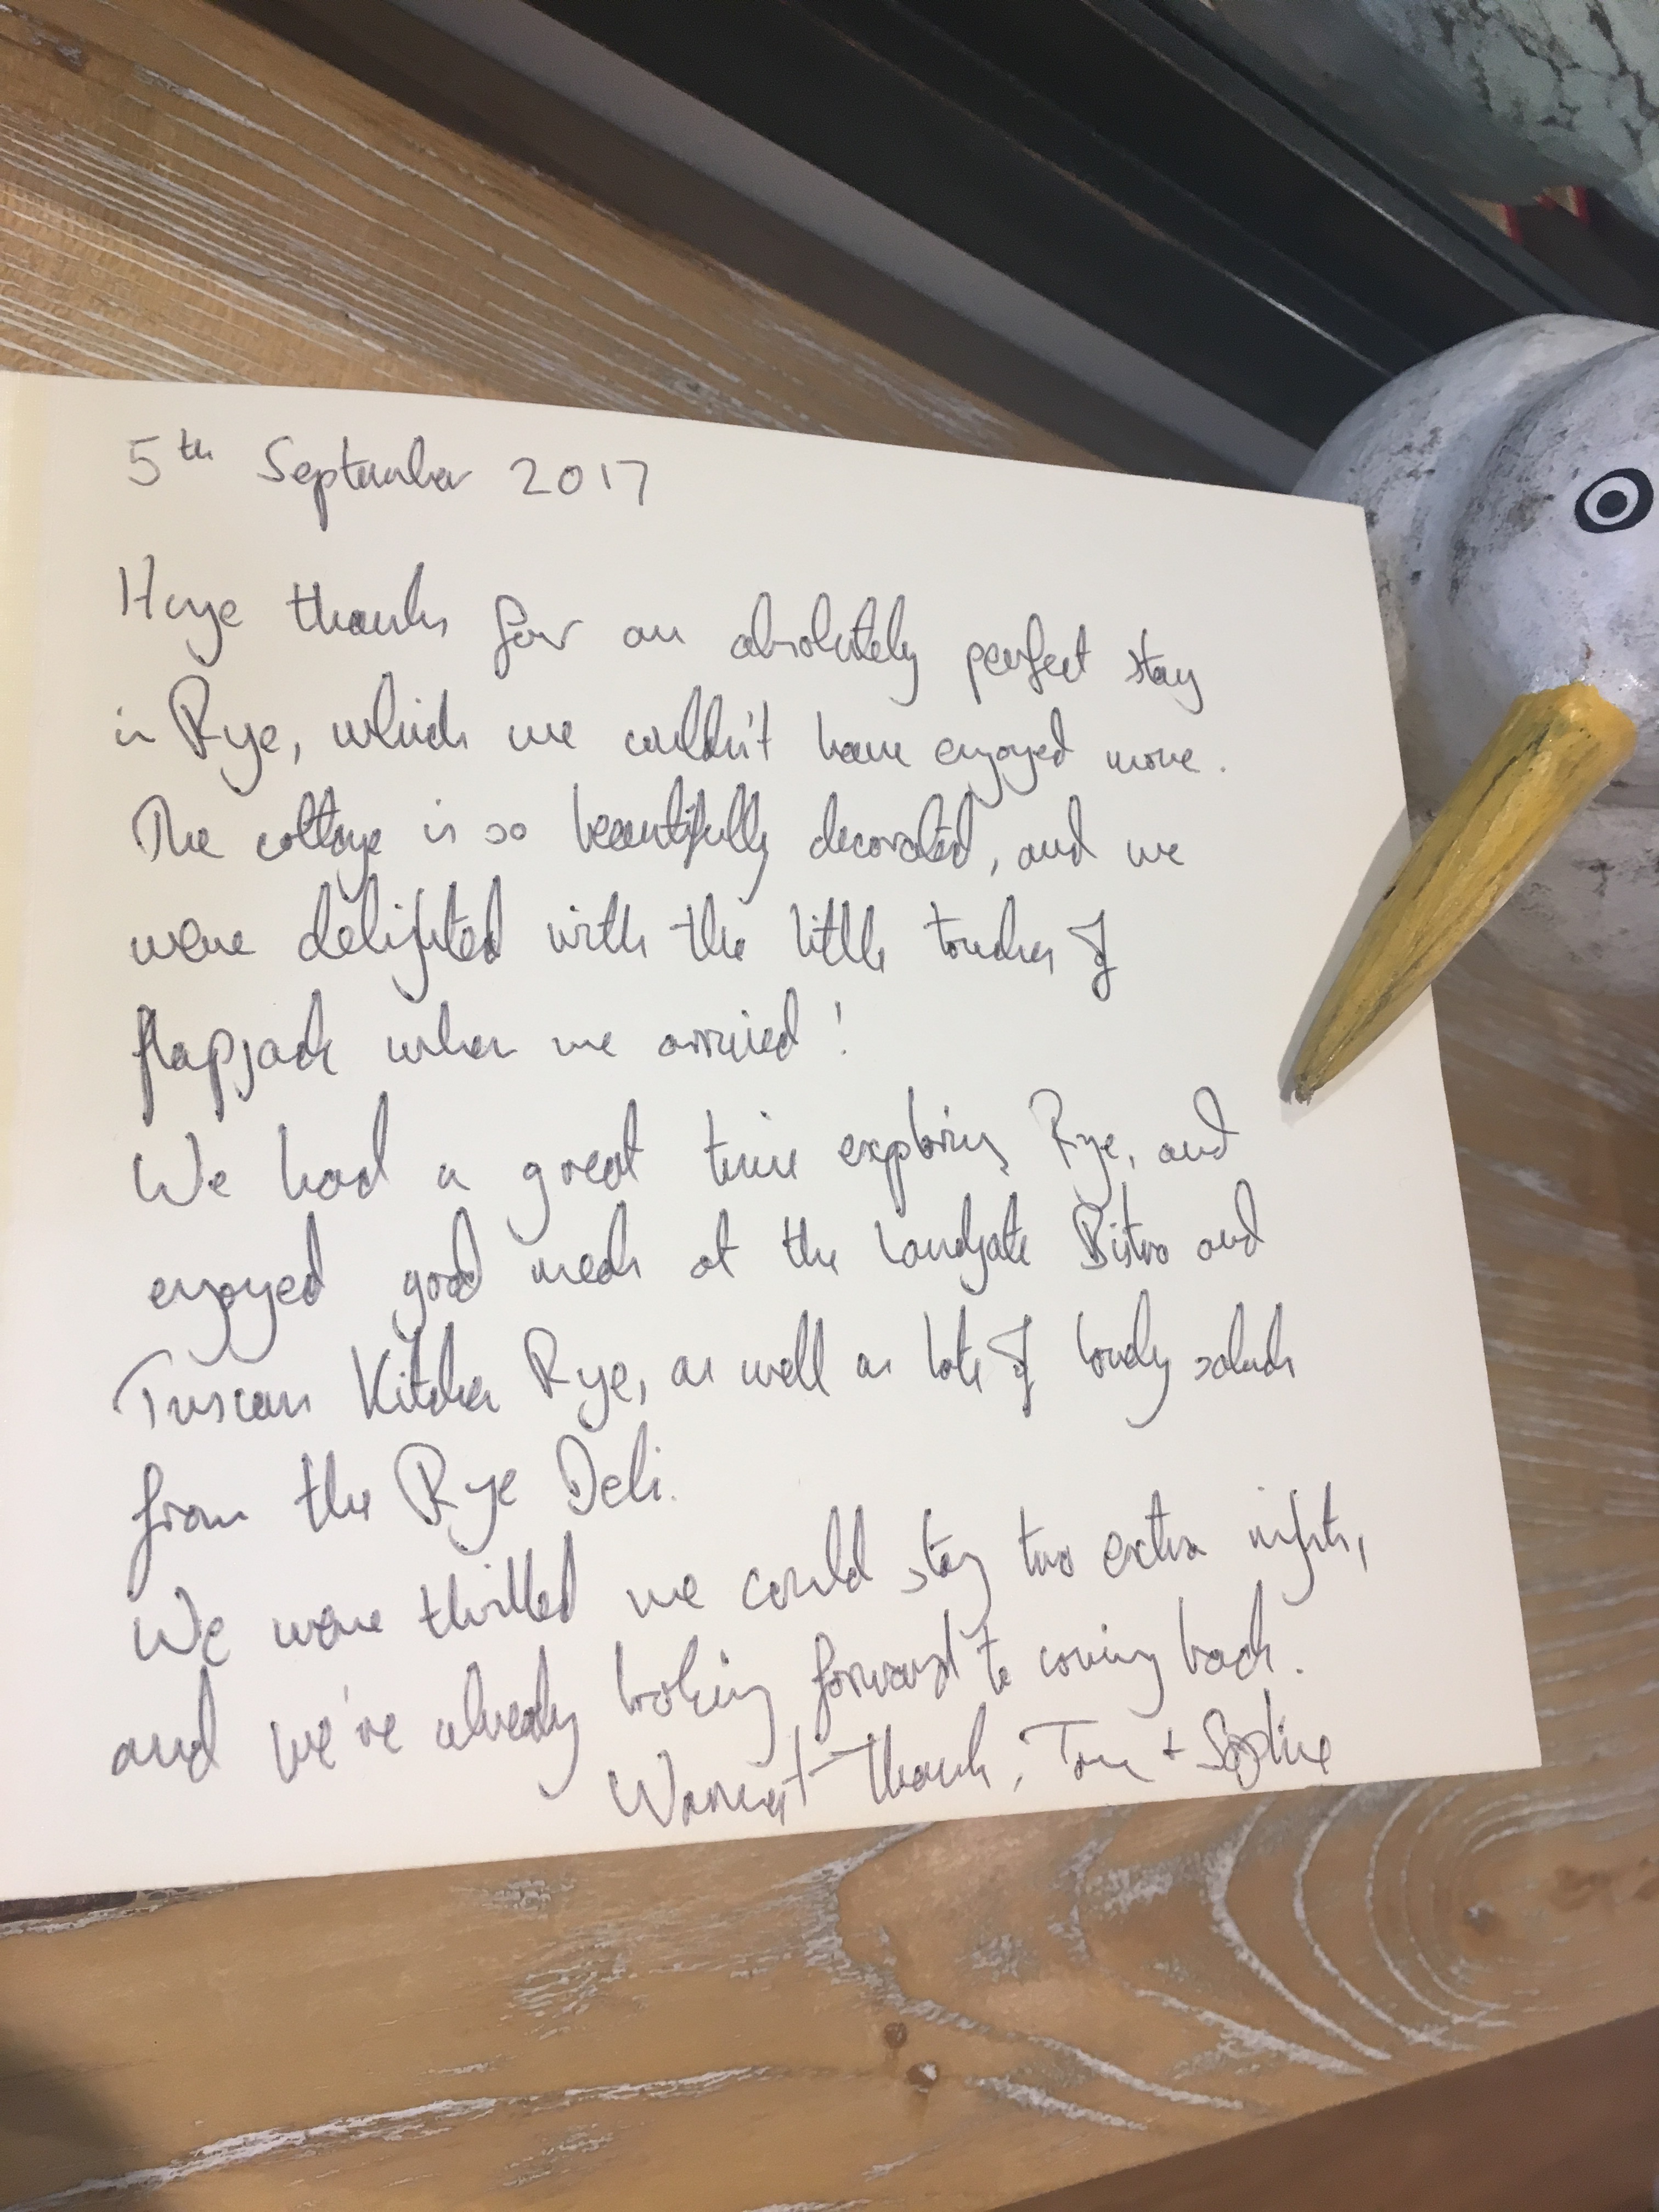 5th September 2017
Huge thanks for an absolutely perfect stay
in Rye, which we couldn't have enjoyed more.
The cottage is so beautifully decorated, and we
were delighted with the little touches of
flapjack when we arrived!
We had a great time exploring Rye, and
enjoyed good meals at the Landgate Bistro and
Tuscan Kitchen Rye, as well as lots of lovely salads
from the Rye Deli.
We were thrilled we could stay two extra nights,
and we're already looking forward to coming back.
Warmest Thanks, Tom + Sophie